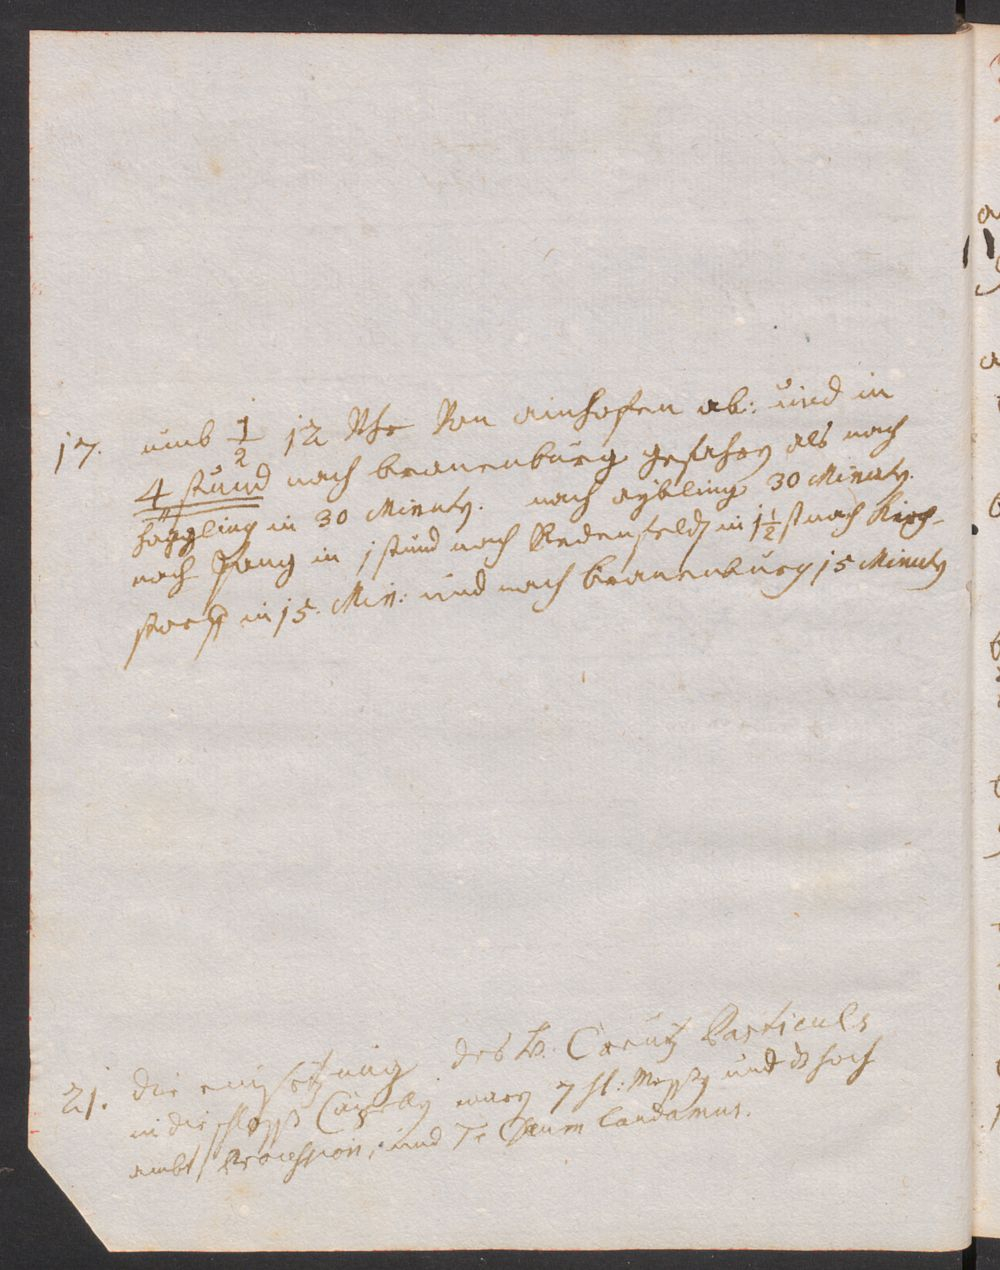 17. umb 1/2 12 Uhr Von ainhofen ab: und in
4 stund nach branenburg gefahren als nach
Högling in 30 Minuten. nach aybling 30 Minuten.
nach Pang in 1 stund nach Redenfelden in 1 1/2 st nach Kirch-
dorff in 15. Min: und nach branenburg 15 Minuten
21. die einsetzung des h. Creutz Particuls
in die schloss Capellen waren 7 hl: Messen und das hoch
ambt, Procession, und Te Deum laudamus.